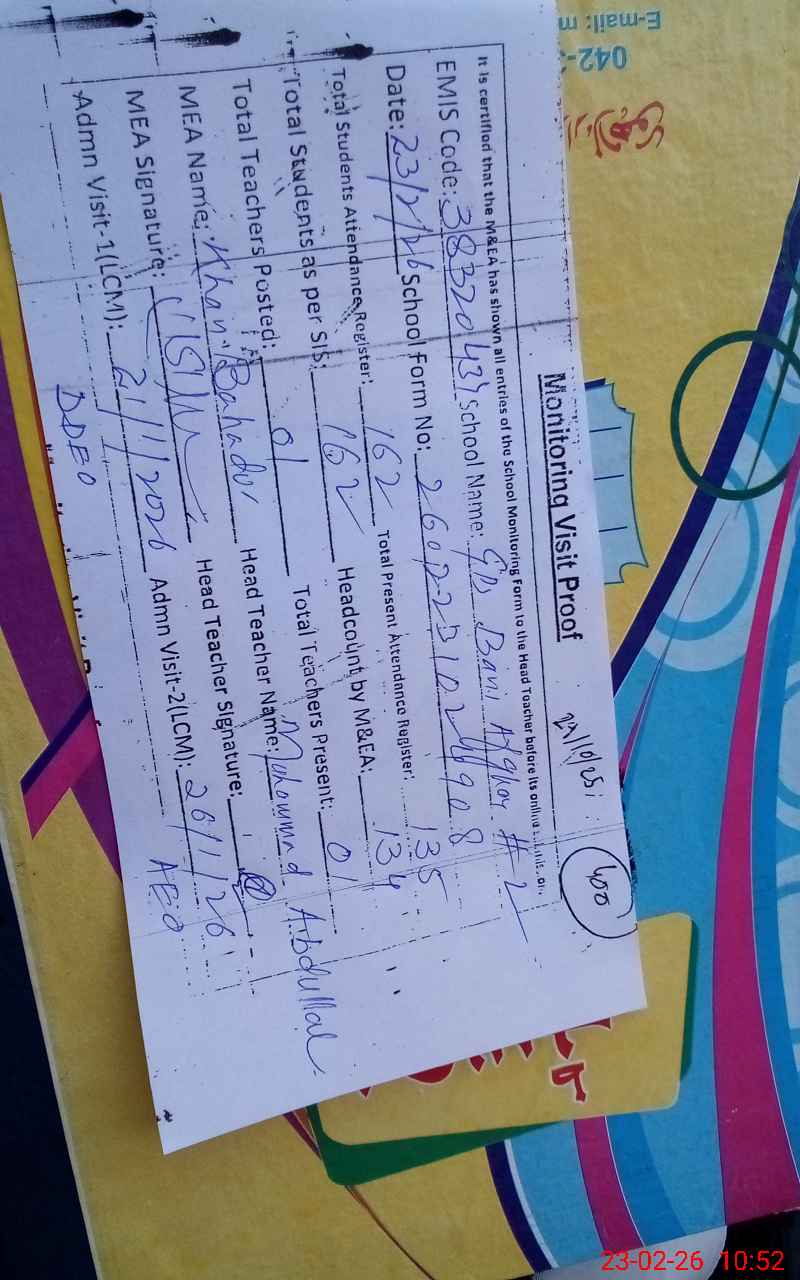 Monitoring Visit Proof
400
It is certified that the M&EA has shown all entries of the School Monitoring Form to the Head Teacher before its online
EMIS Code: 38320431 School Name: GPS # 2
Date: 23/2/26 School Form No:
Total Students Attendance Register: 162 Total Present Attendance Register: 135
Total Students as per SIS: 162 Headcount by M&EA: 134
Total Teachers Posted: 01 Total Teachers Present: 01
MEA Name: Khan Bahadur Head Teacher Name: Abdullah
MEA Signature: Head Teacher Signature:
Admn Visit-1(LCM): 21/1/2026 Admn Visit-2(LCM): 26/1/26
DDEO AEO
E-mail: m
042-
23-02-26 10:52